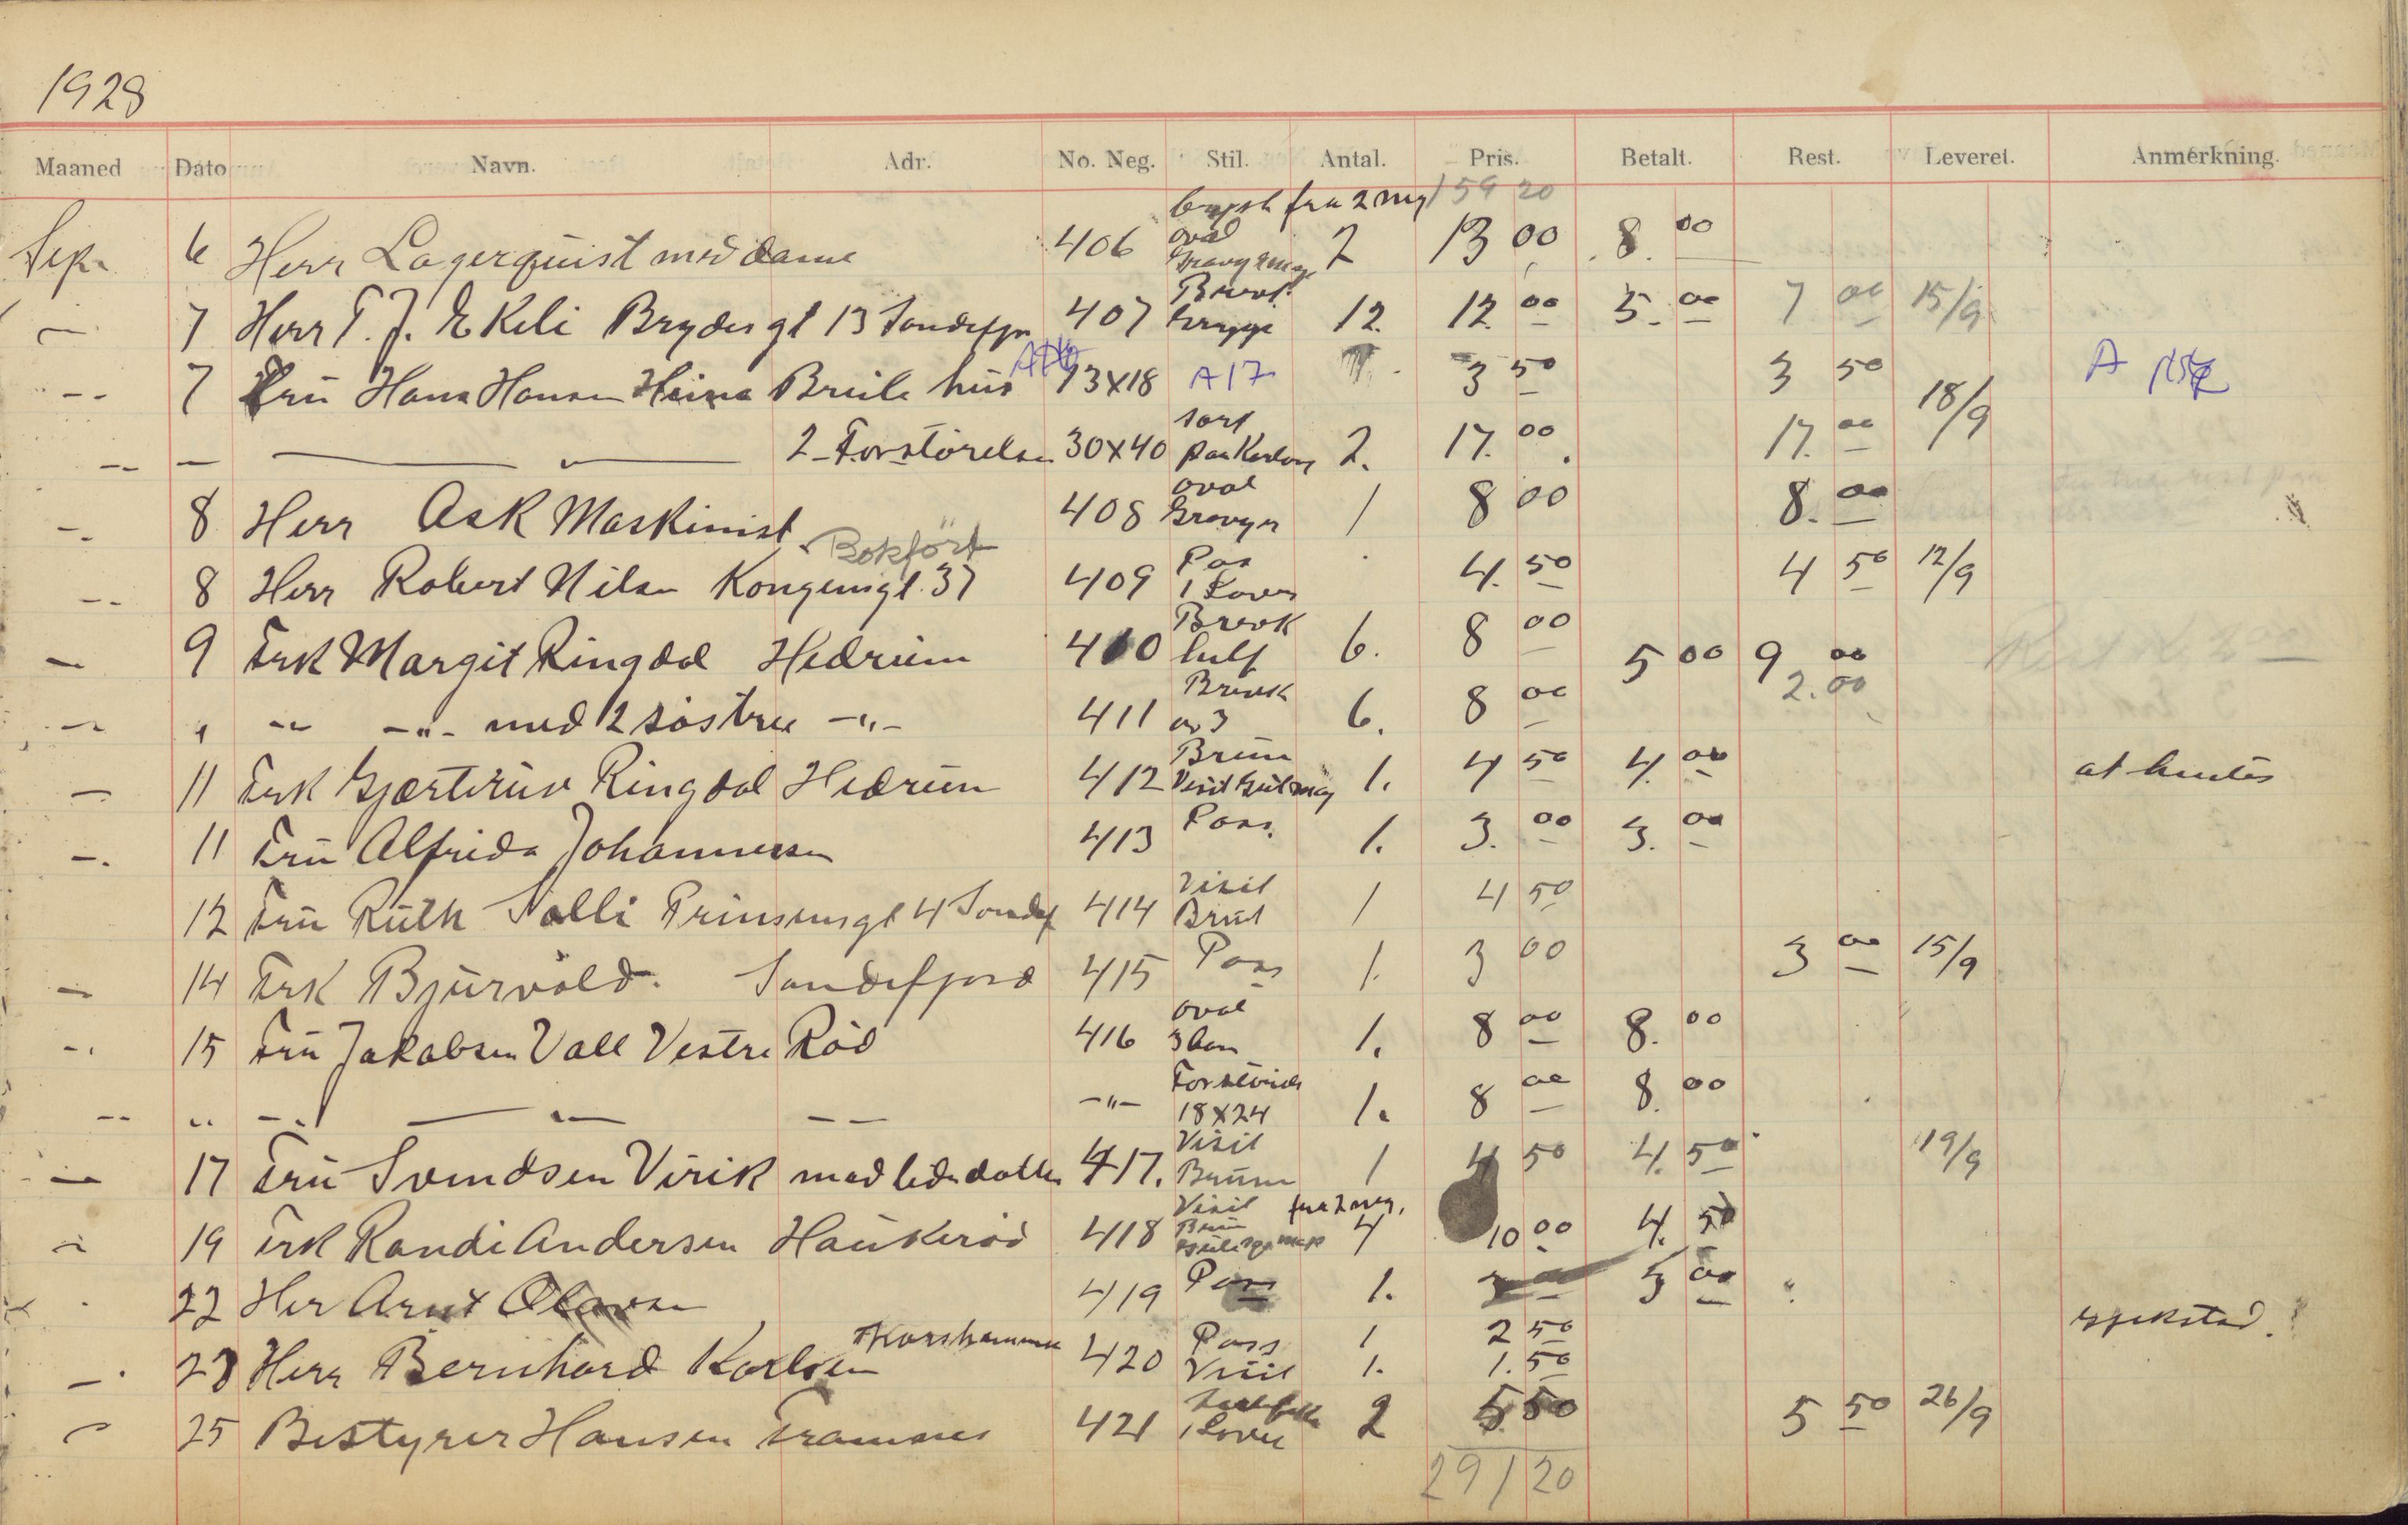 1928
Maaned Dato Navn. Adr. No. Neg. Stil. Antal. Pris. Betalt. Rest. Leveret. Anmerkning.
fra 2 neg 159 20
Sep. 6 Herr Lagerquist med dame 406 oval 2 13 00 8. 00
7 Herr T. J. Ekeli Brydesgt 13 Sandefj 407 12. 12. 00 5. 00 7 00 15/9
7 Fru Hans Hansen Heime hus 13x18 A17 3 50 3 50 18/9 A
2 Forstörelse 30x40 sort 2. 17. 00 17. 00
8 Herr Ask Maskinist 408 oval 1 8 00 8. 00
Bokfört
8 Herr Robert Nilsen Kongensgt. 37 409 Pas 4. 50 4 50 12/9
9 Frk Margit Ringdal Hedrum 410 Brevk 6. 8 00 5 00 9 00
2.00
" -"- med 2 søstre -"- 411 Brevk av 3 6. 8 00
11 Frk Ringdal Hedrum 412 Brun Visit 1. 4 50 4. 00 at hentes
11 Fru Alfrida Johannessen 413 Pass. 1. 3. 00 3. 00
12 Fru Ruth Salli Prinsensgt 4 Sandef 414 Visit Brunt 1 4 50
14 Frk Bjurvåld. Sandefjord 415 Pass 1. 3 00 3 00 15/9
15 Fru Jakobsen Vall Vestre Röd 416 oval 1. 8 00 8. 00
-"- 18x24 1. 8 00 8. 00
17 Fru Svendsen Virik med liden datter 417. Visit Brun 1 4 50 4. 50 19/9
fra 2 neg.
19 Frk Randi Andersen Haukeröd 418 Visit Brun 4 10 00 4. 50
22 Her Arnt Olavsen 419 Pass 1. 3 00 3 00
23 Herr Bernhard Karlsen 420 Pass 1 2 50
Visit 1. 1. 50
25 Bestyrer Hansen Framnes 421 2 5 50 5 50 26/9
29/20